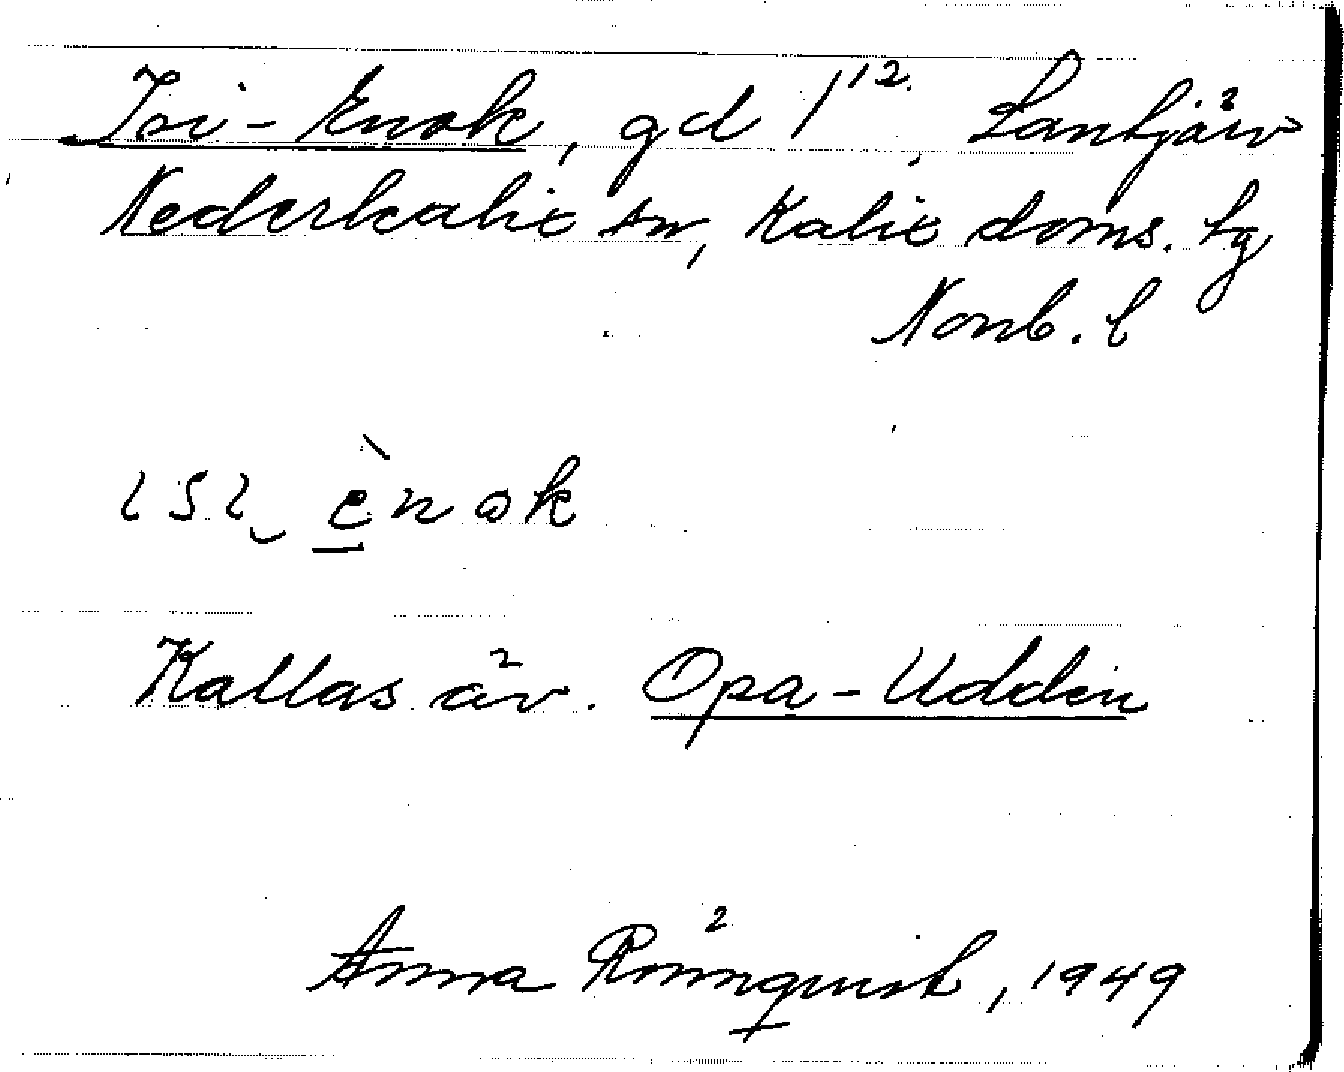 Isi-Enok, gd 1¹², Lantjärv
Nederkalix sn, Kalix doms. lg
Norrb. l
ɩsɩ ènok
Kallas äv. Opa-Udden
Anna Rönnqvist, 1949